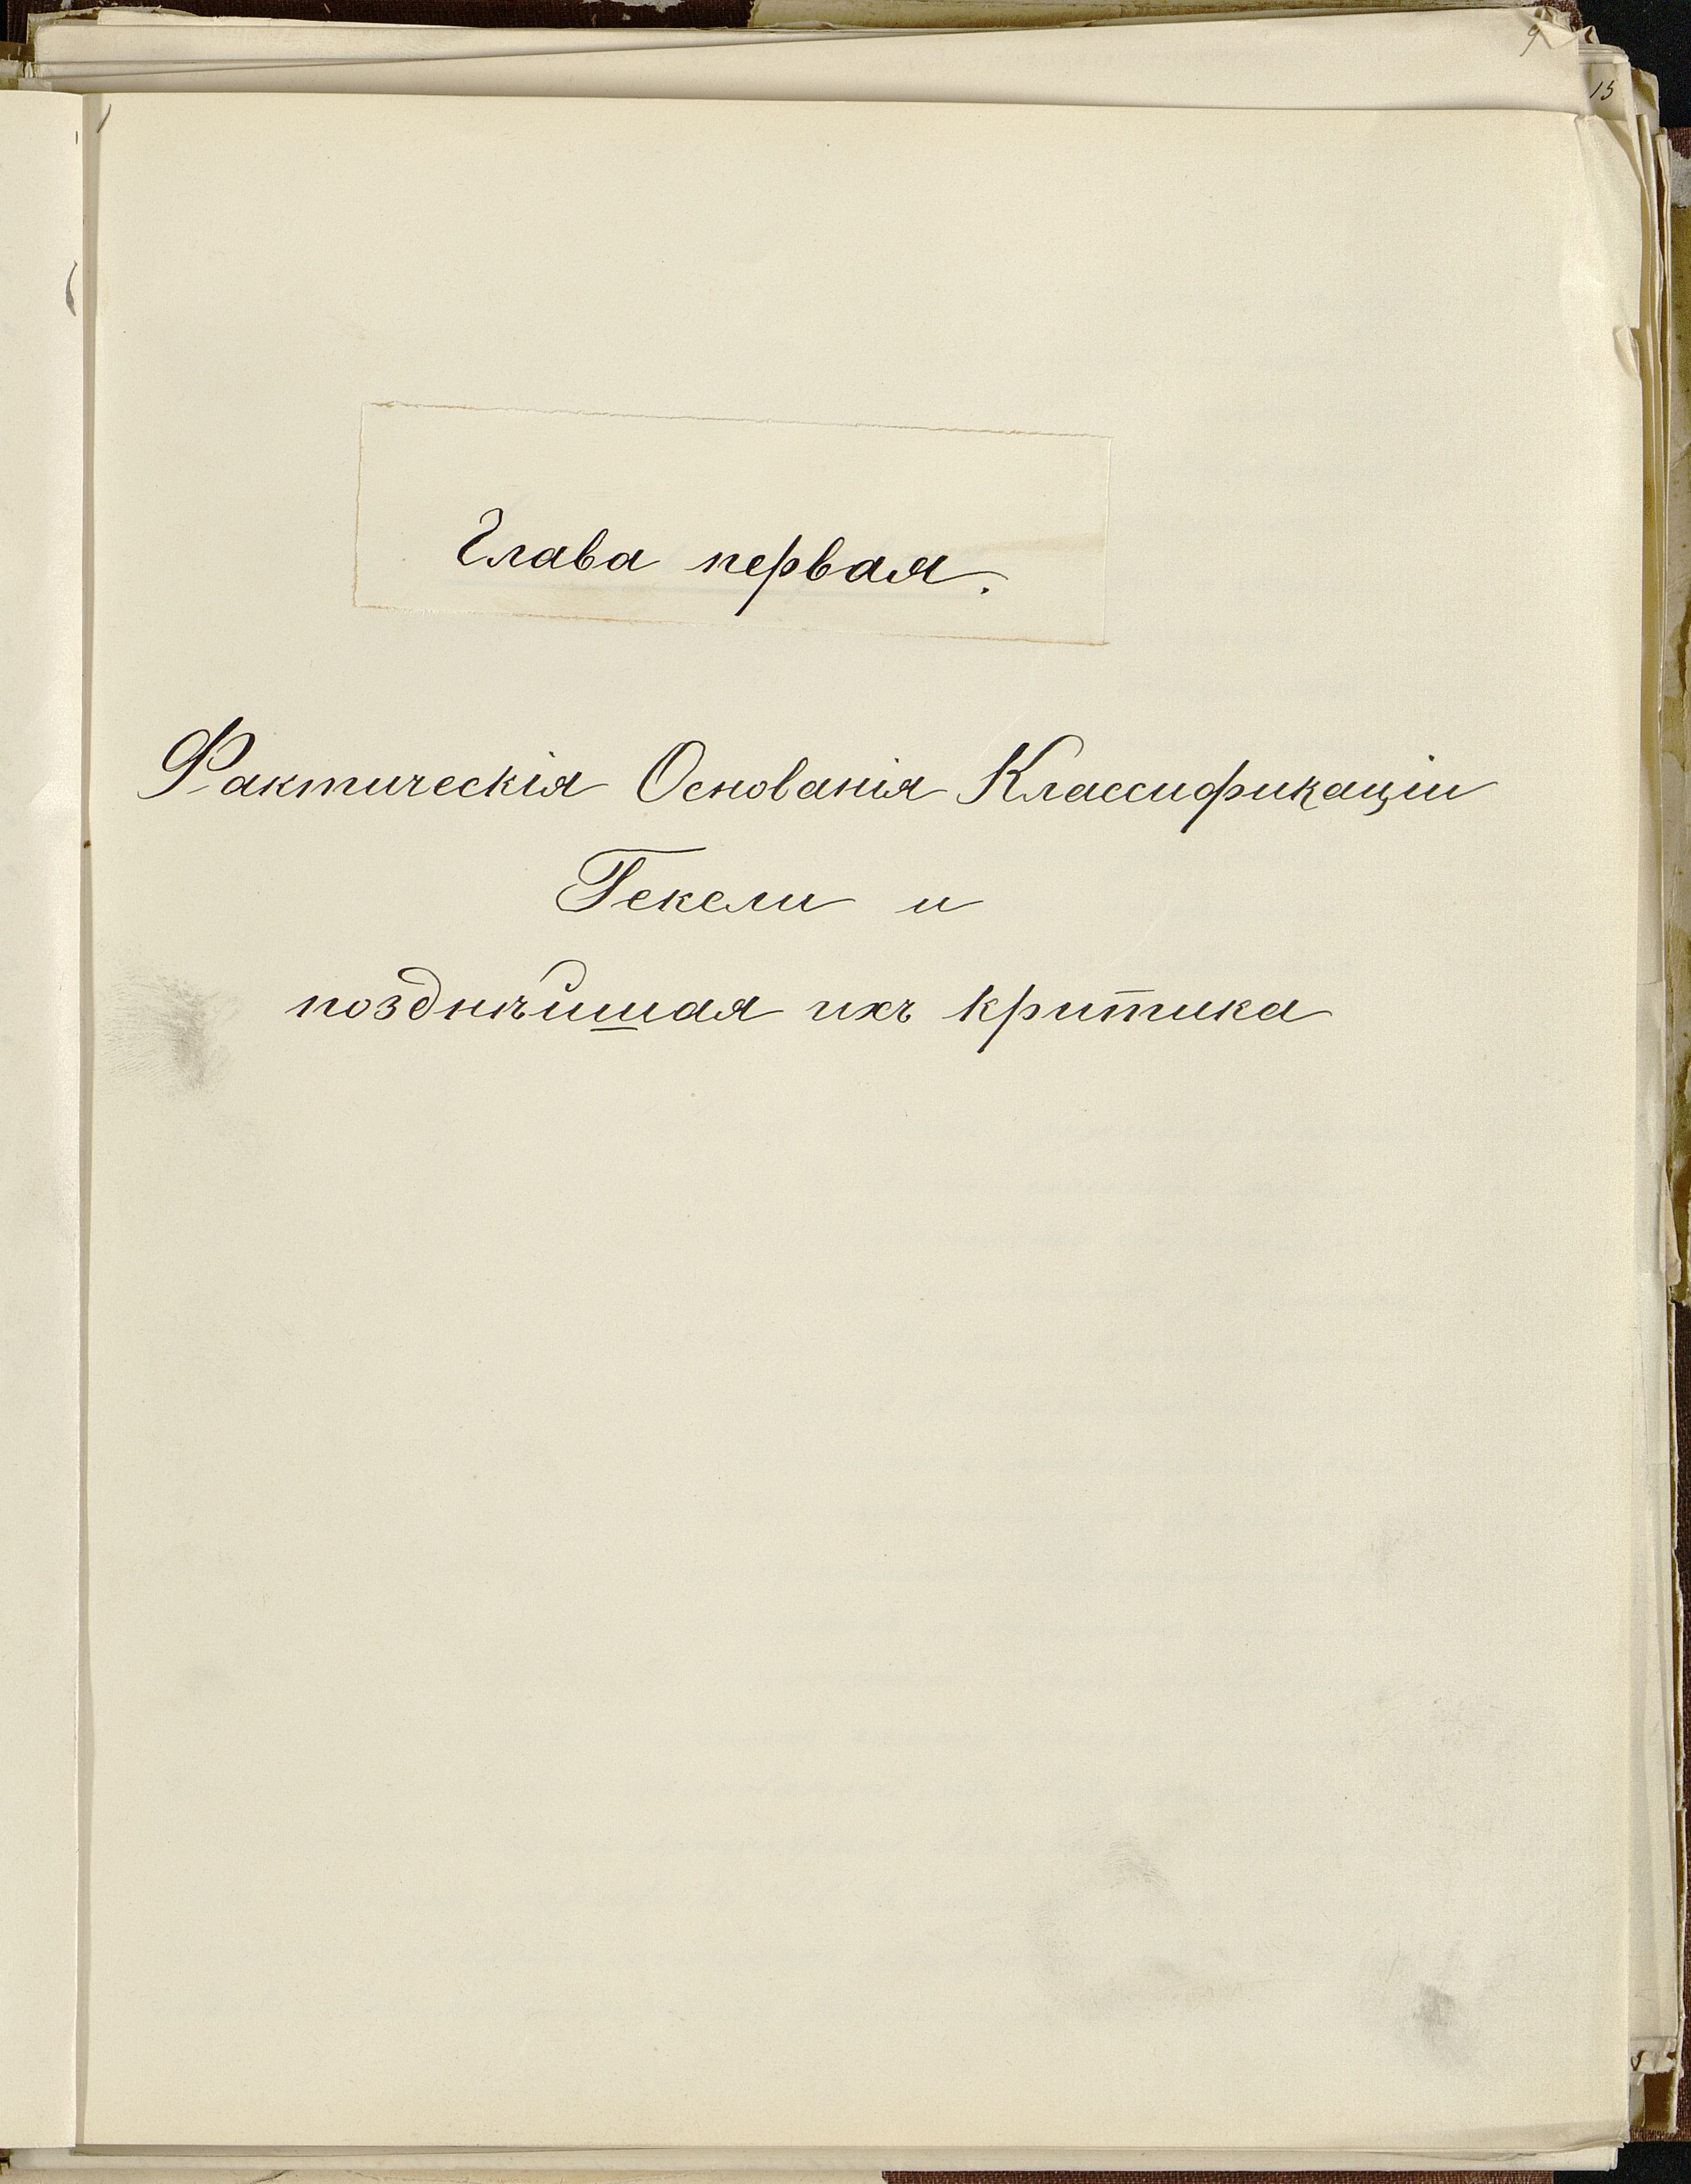 9
15
Глава первая.
Фактическія Основанія Классификаціи
Гексли и
позднѣйшая ихъ критика